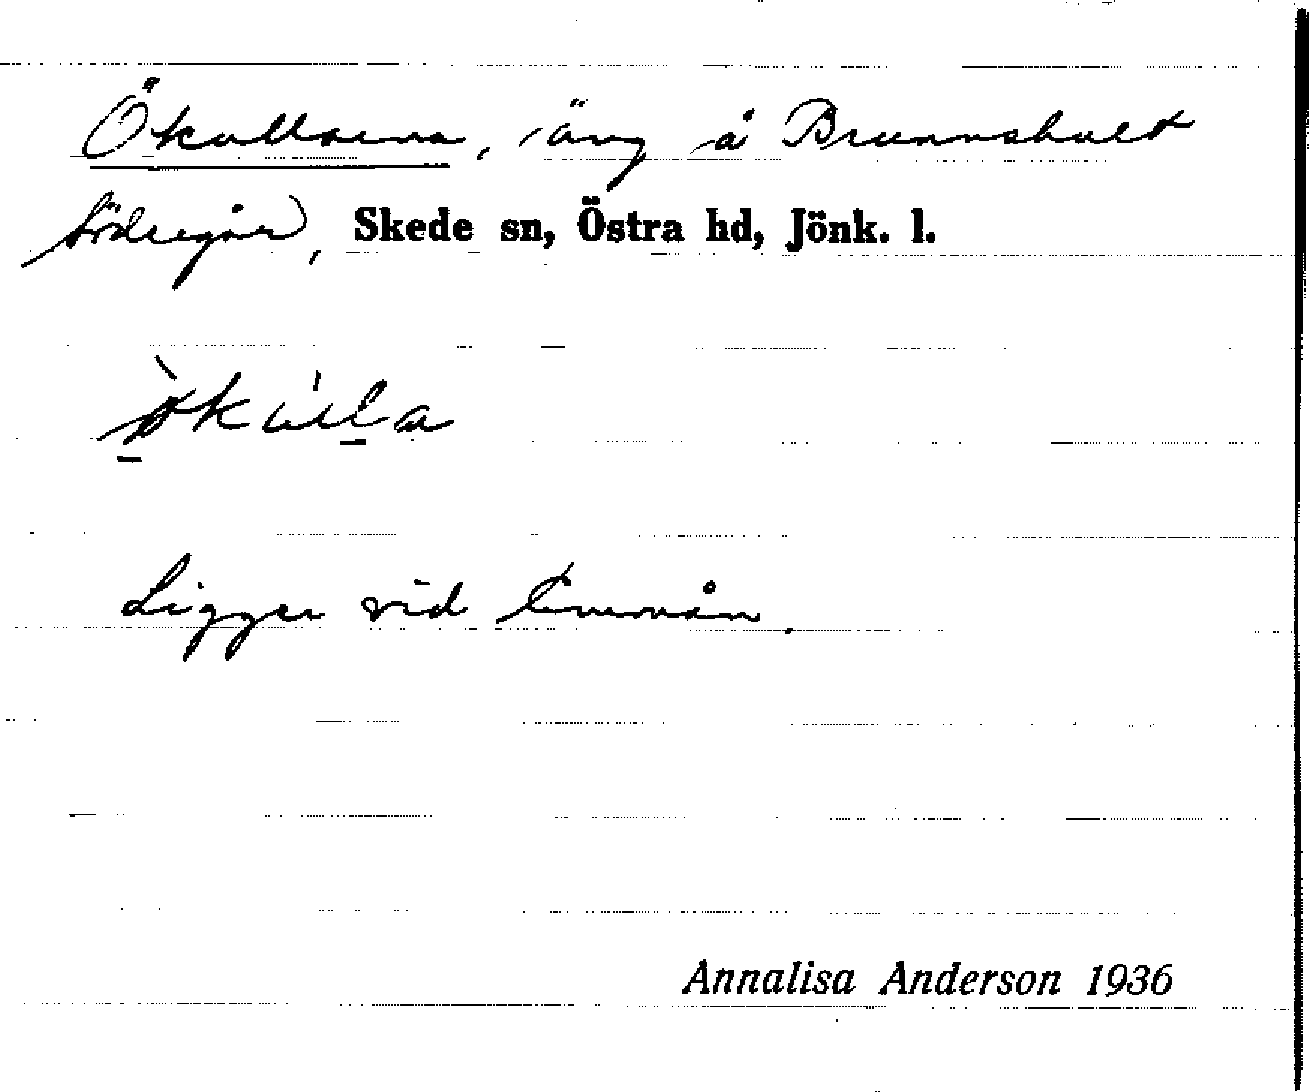 Ökullarna, äng å Brunnshult
Södregård, Skede sn, Östra hd, Jönk. l.
Ligger vid Emmån.
Annalisa Anderson 1936